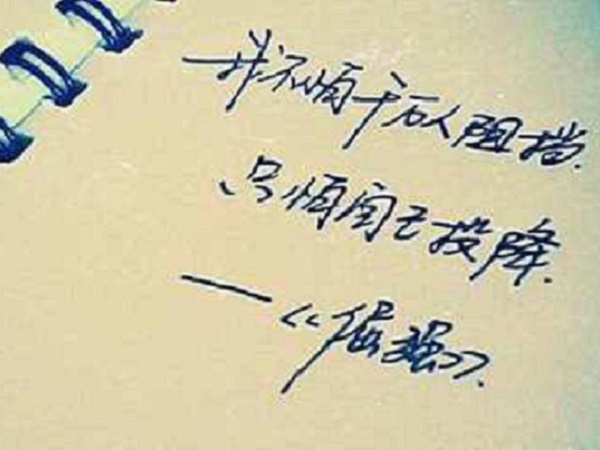 我不惧千万人阻挡.
只惧自己投降.
——《倔强》.